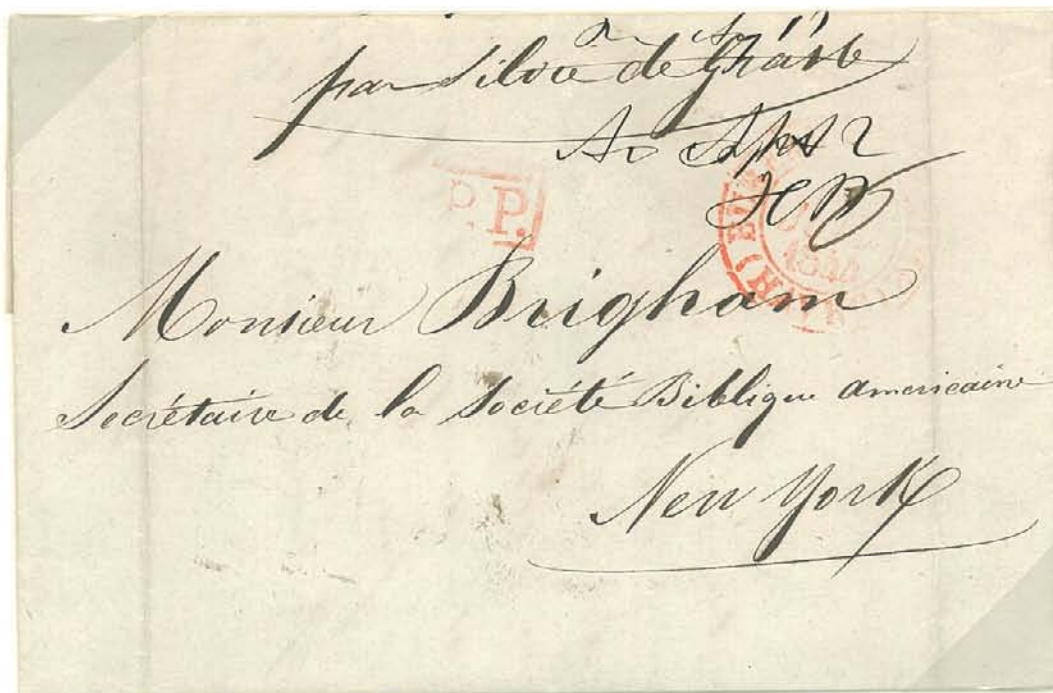 par Silvie de Grasse
P.P.
Monsieur Brigham
Secrétaire de la Société Biblique americaine
New York